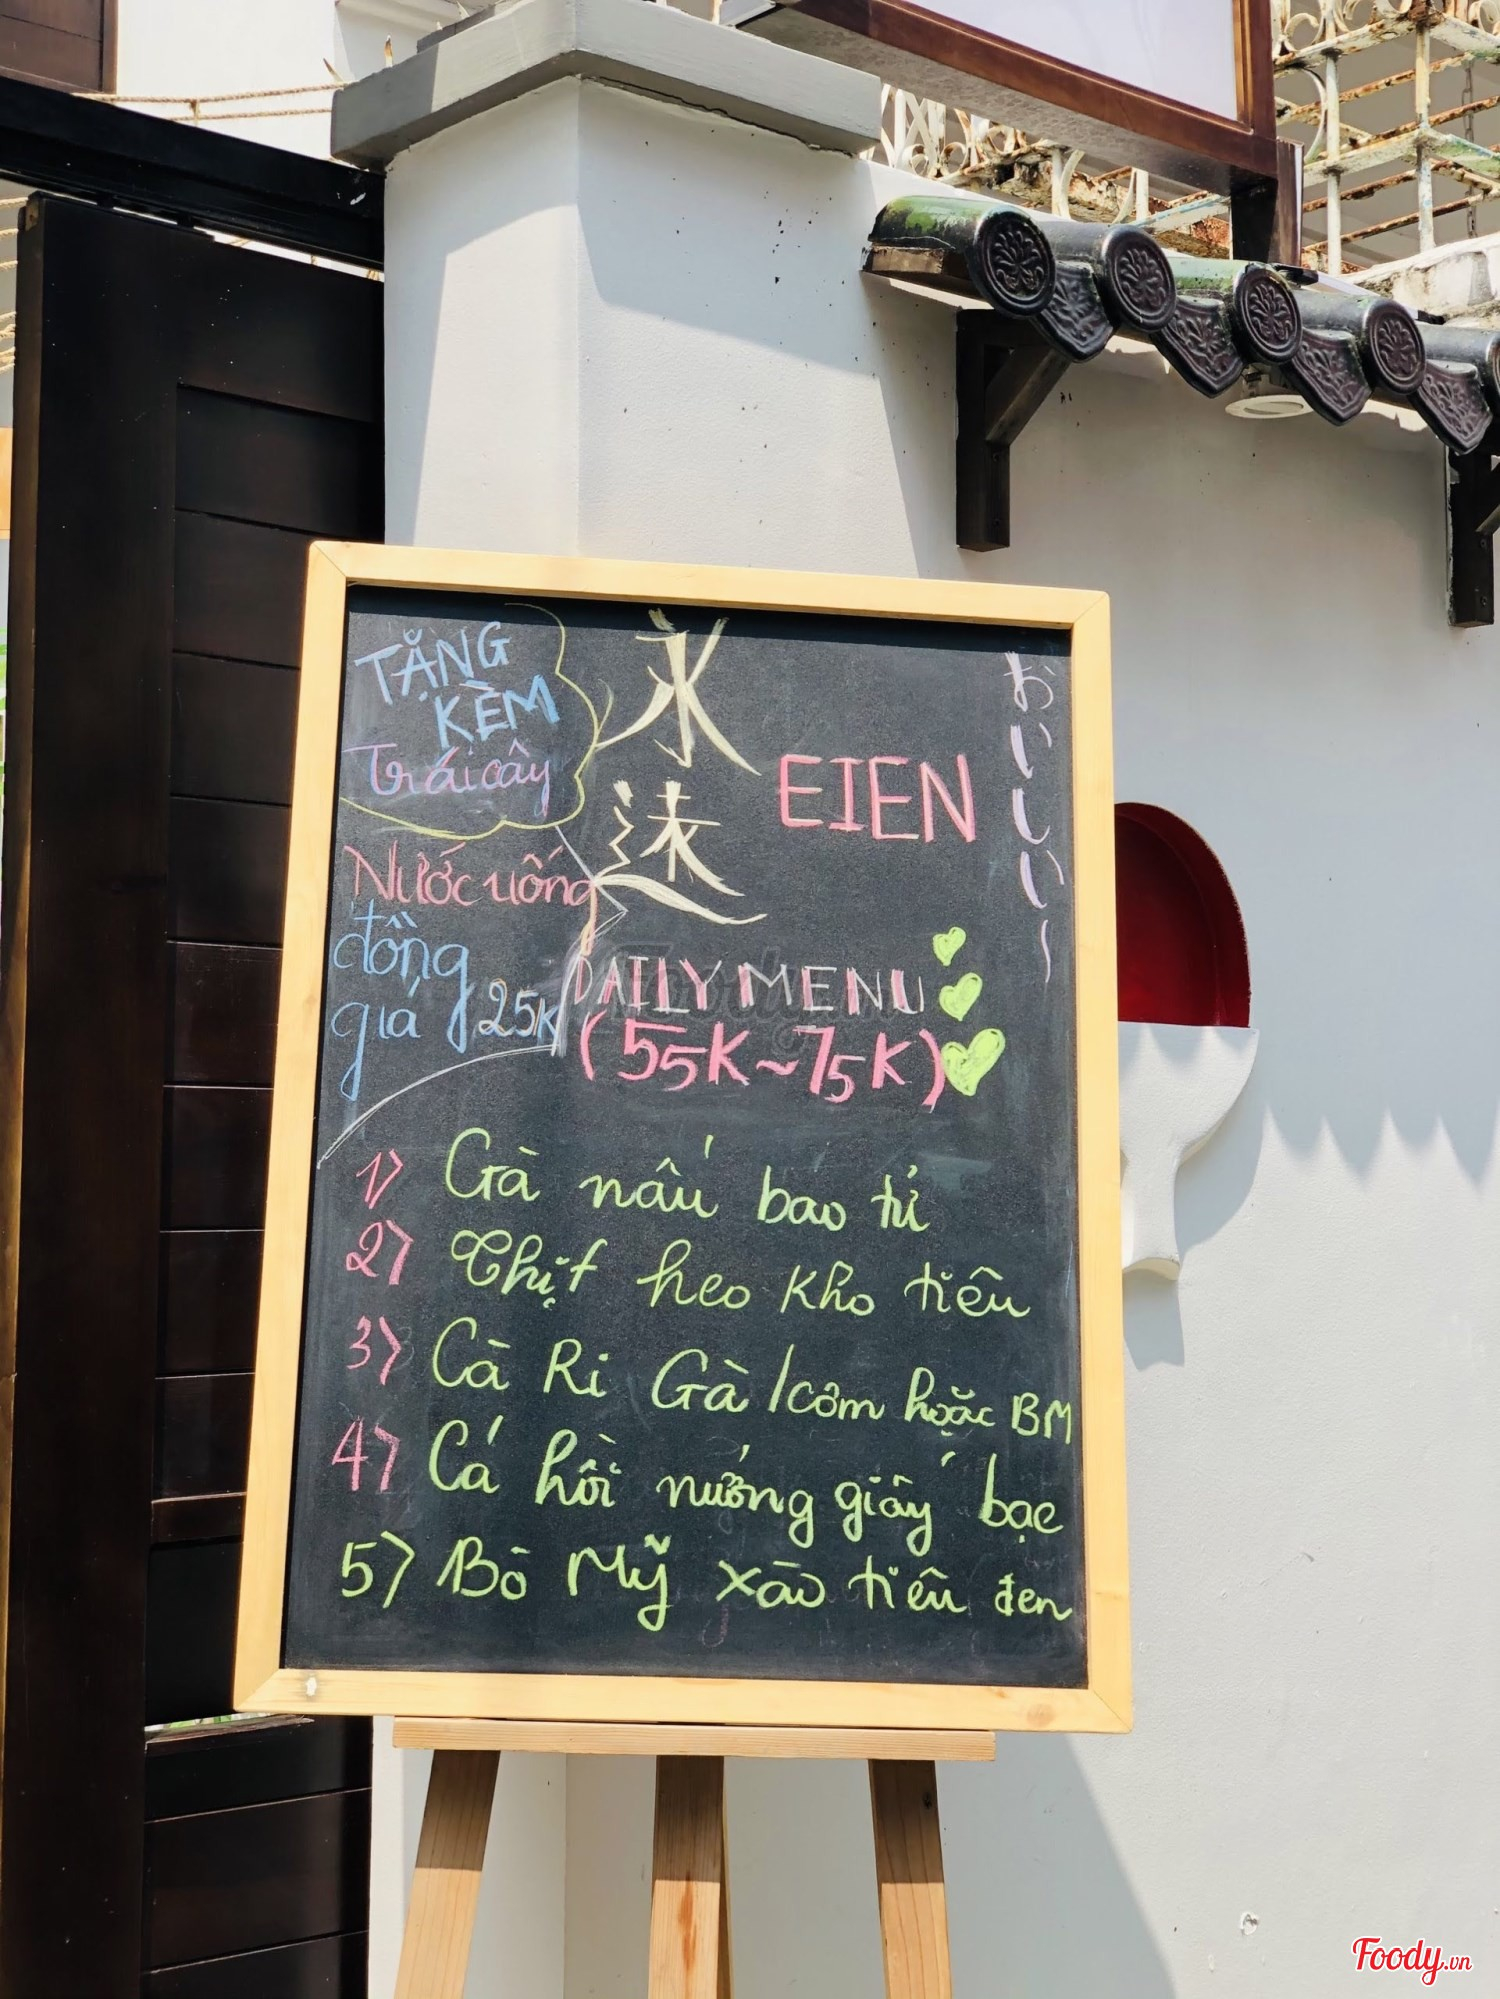 TẶNG
KÈM
Trái cây
永
遠
EIEN
おいしい～
Nước uống
đồng
giá 25K
DAILY MENU
(55K~75K)
1) Gà nấu bao tử
2) Thịt heo kho tiêu
3) Cà Ri Gà / cơm hoặc BM
4) Cá hồi nướng giấy bạc
5) Bò Mỹ xào tiêu đen
Foody.vn